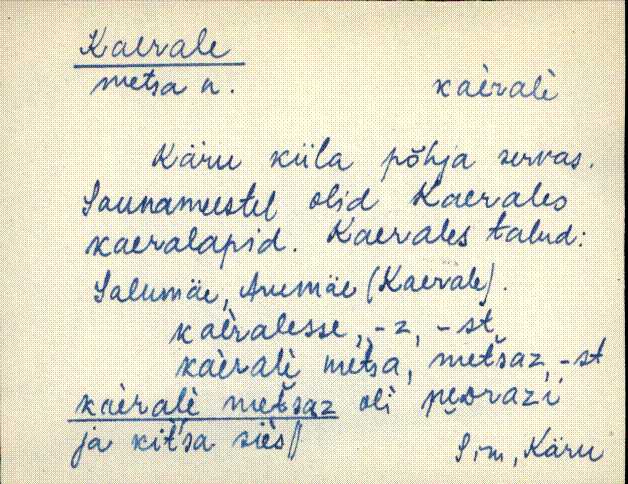 Kaerale
metsa n. kaèralè
Käru küla põhja servas.
Saunameestel olid Kaerales
kaeralapid. Kaerales talud:
Salumäe, Arumäe (Kaerale).
kaèralesse, -z, -st
kaèralè metsa, metšaz, -st
kaèralè metšaz oli peorazi
ja kitsa siès
S,m, Käru